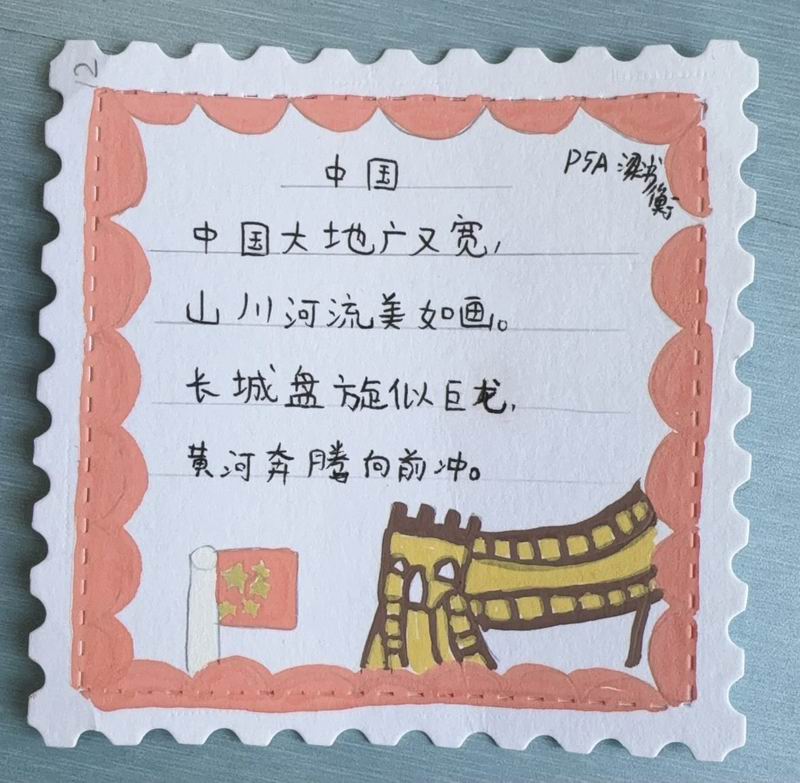 12
中国
P5A 梁书衡
中国大地广又宽,
山川河流美如画。
长城盘旋似巨龙,
黄河奔腾向前冲。